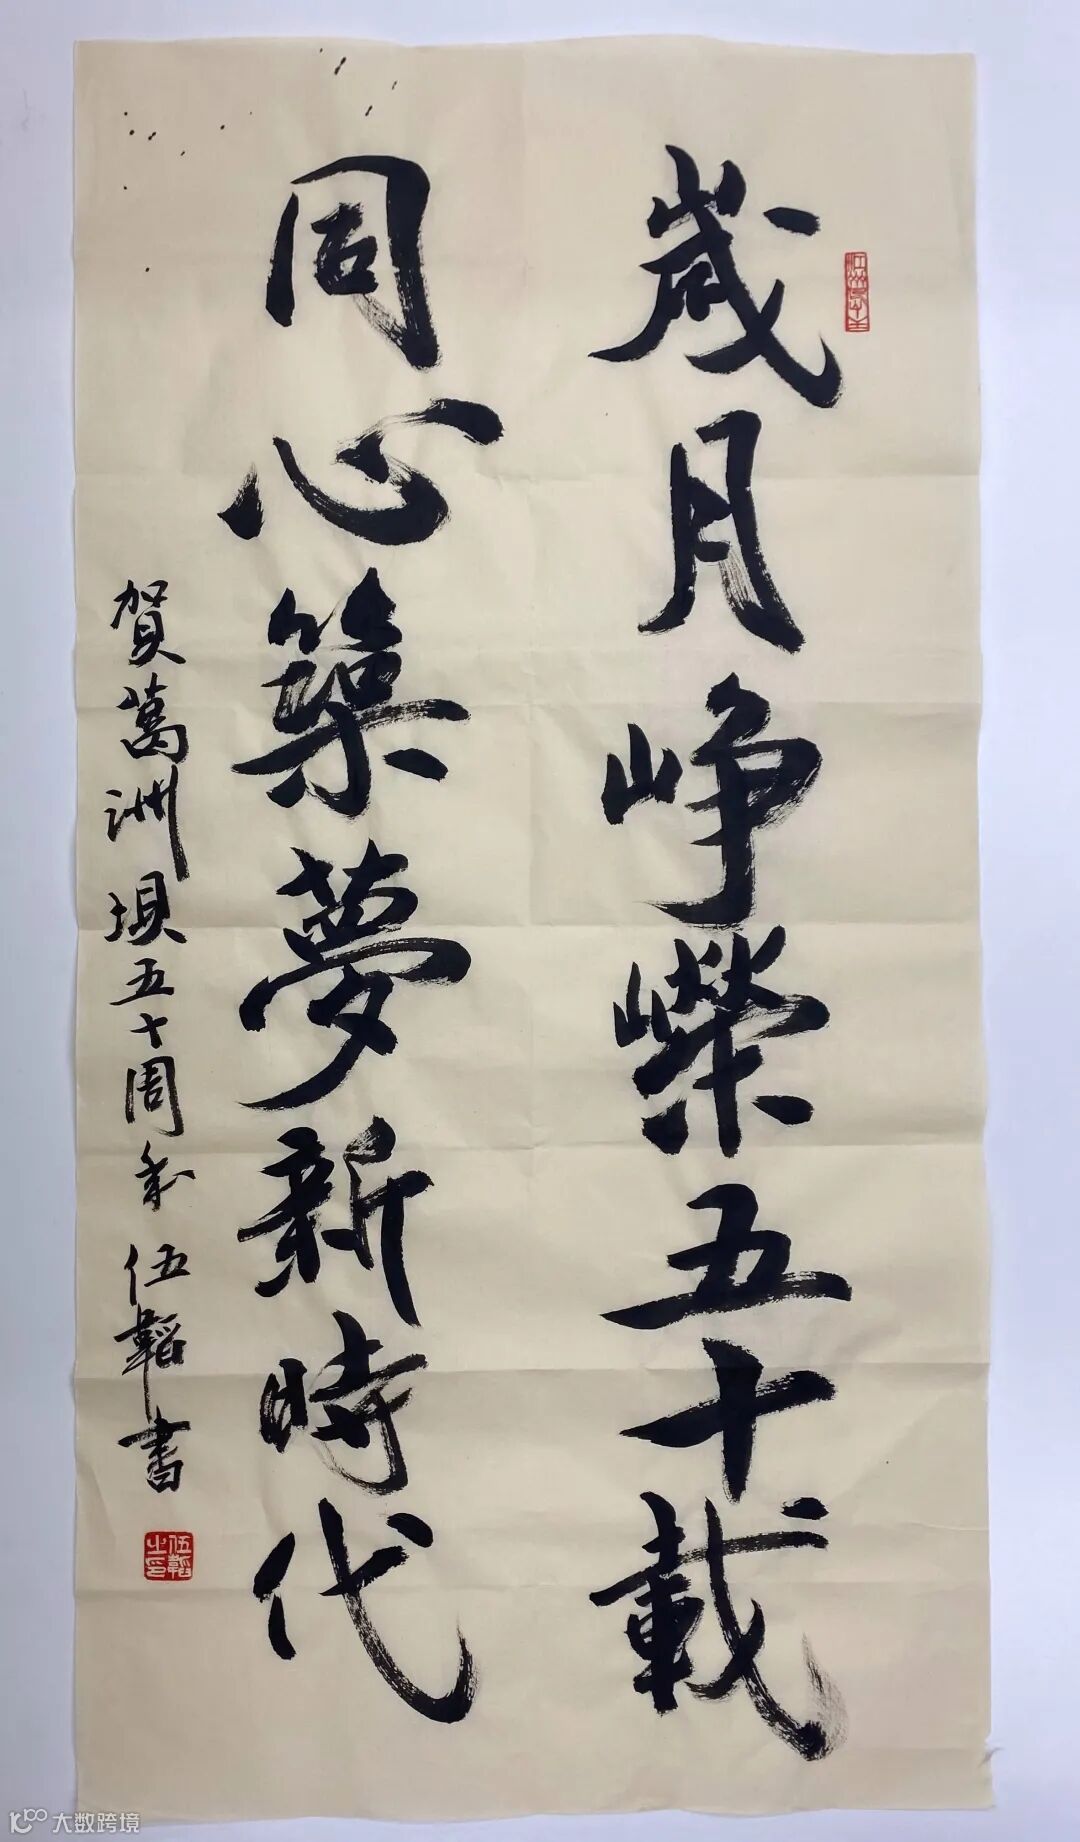 歲月崢嶸五十載
同心築夢新時代
賀葛洲坝五十周年 伍韜書
伍韜之印
大数跨境